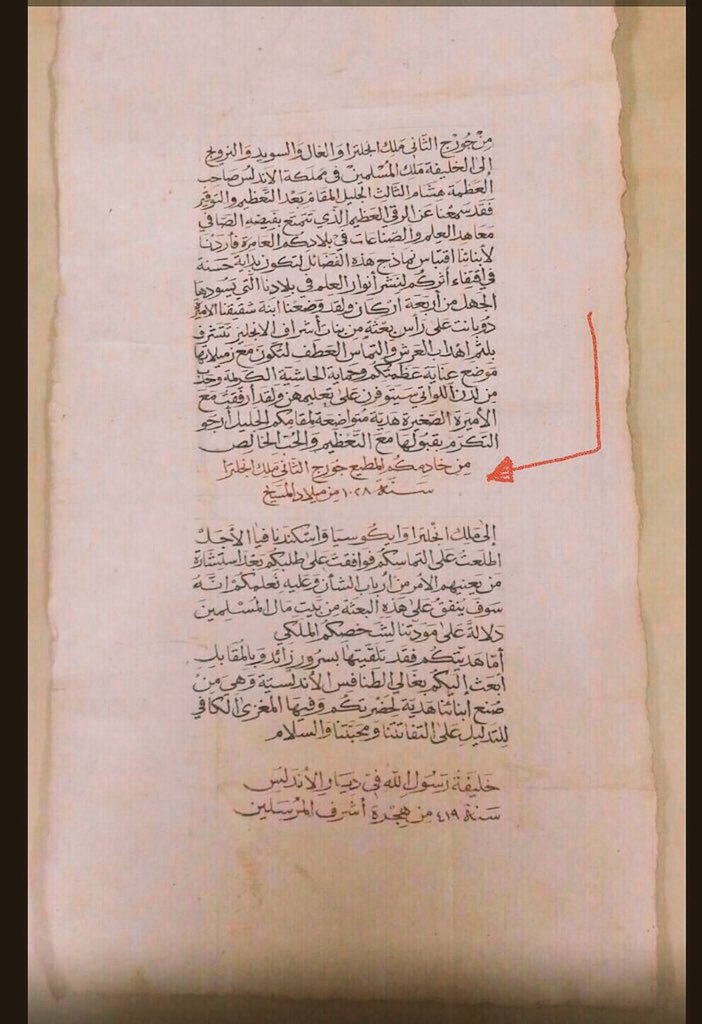 من جورج الثاني ملك انجلترا والغال والسويد والنرويج
إلى الخليفة ملك المسلمين في مملكة الاندلس صاحب
العظمة هشام الثالث الجليل المقام بعد التعظيم والتوقير
فقد سمعنا عن الرقي العظيم الذي تتمتع بفيضه الصافي
معاهد العلم والصناعات في بلادكم العامرة فأردنا
لأبنائنا اقتباس نماذج هذه الفضائل لتكون بداية حسنة
في اقتفاء أثركم لنشر أنوار العلم في بلادنا التي يسودها
الجهل من أربعة أركان ولقد وضعنا ابنة شقيقنا الاميرة
دوبانت على رأس بعثة من بنات أشراف الانجليز تتشرف
بلثم اهداب العرش والتماس العطف لتكون مع زميلاتها
موضع عناية عظمتكم وحماية الحاشية الكريمة وحدب
من لدن اللواتي سيتوفرن على تعليمهن ولقد أرفقت مع
الأميرة الصغيرة هدية متواضعة لمقامكم الجليل أرجو
التكرم بقبولها مع التعظيم والحب الخالص
من خادمكم المطيع جورج الثاني ملك انجلترا
سنة ١٠٢٨ من ميلاد المسيح
إلى ملك انجلترا وايكوسيا واسكندنيافيا الأجل
اطلعت على التماسكم فوافقت على طلبكم بعد استشارة
من يعنيهم الأمر من أرباب الشأن وعليه نعلمكم انه
سوف ينفق على هذه البعثة من بيت مال المسلمين
دلالة على مودتنا لشخصكم الملكي
أما هديتكم فقد تلقيتها بسرور زائد وبالمقابل
ابعث إليكم بغالي الطنافس الأندلسية وهي من
صنع ابنائنا هدية لحضرتكم وفيها المغزى الكافي
للتدليل على التفاتتنا ومحبتنا والسلام
خليفة رسول الله في ديار الأندلس
سنة ٤١٩ من هجرة أشرف المرسلين